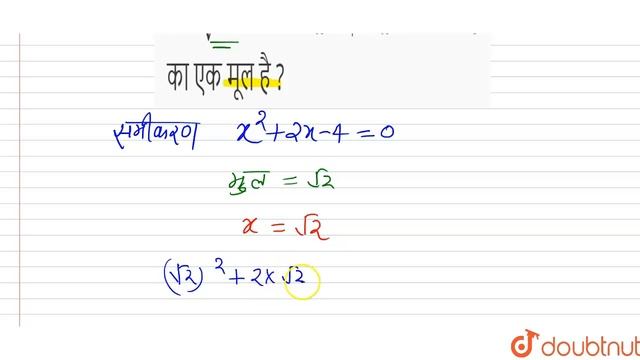 का एक मूल है ?
समीकरण x²+2x-4=0
मुल = √2
x = √2
(√2)² + 2x √2
doubtnut